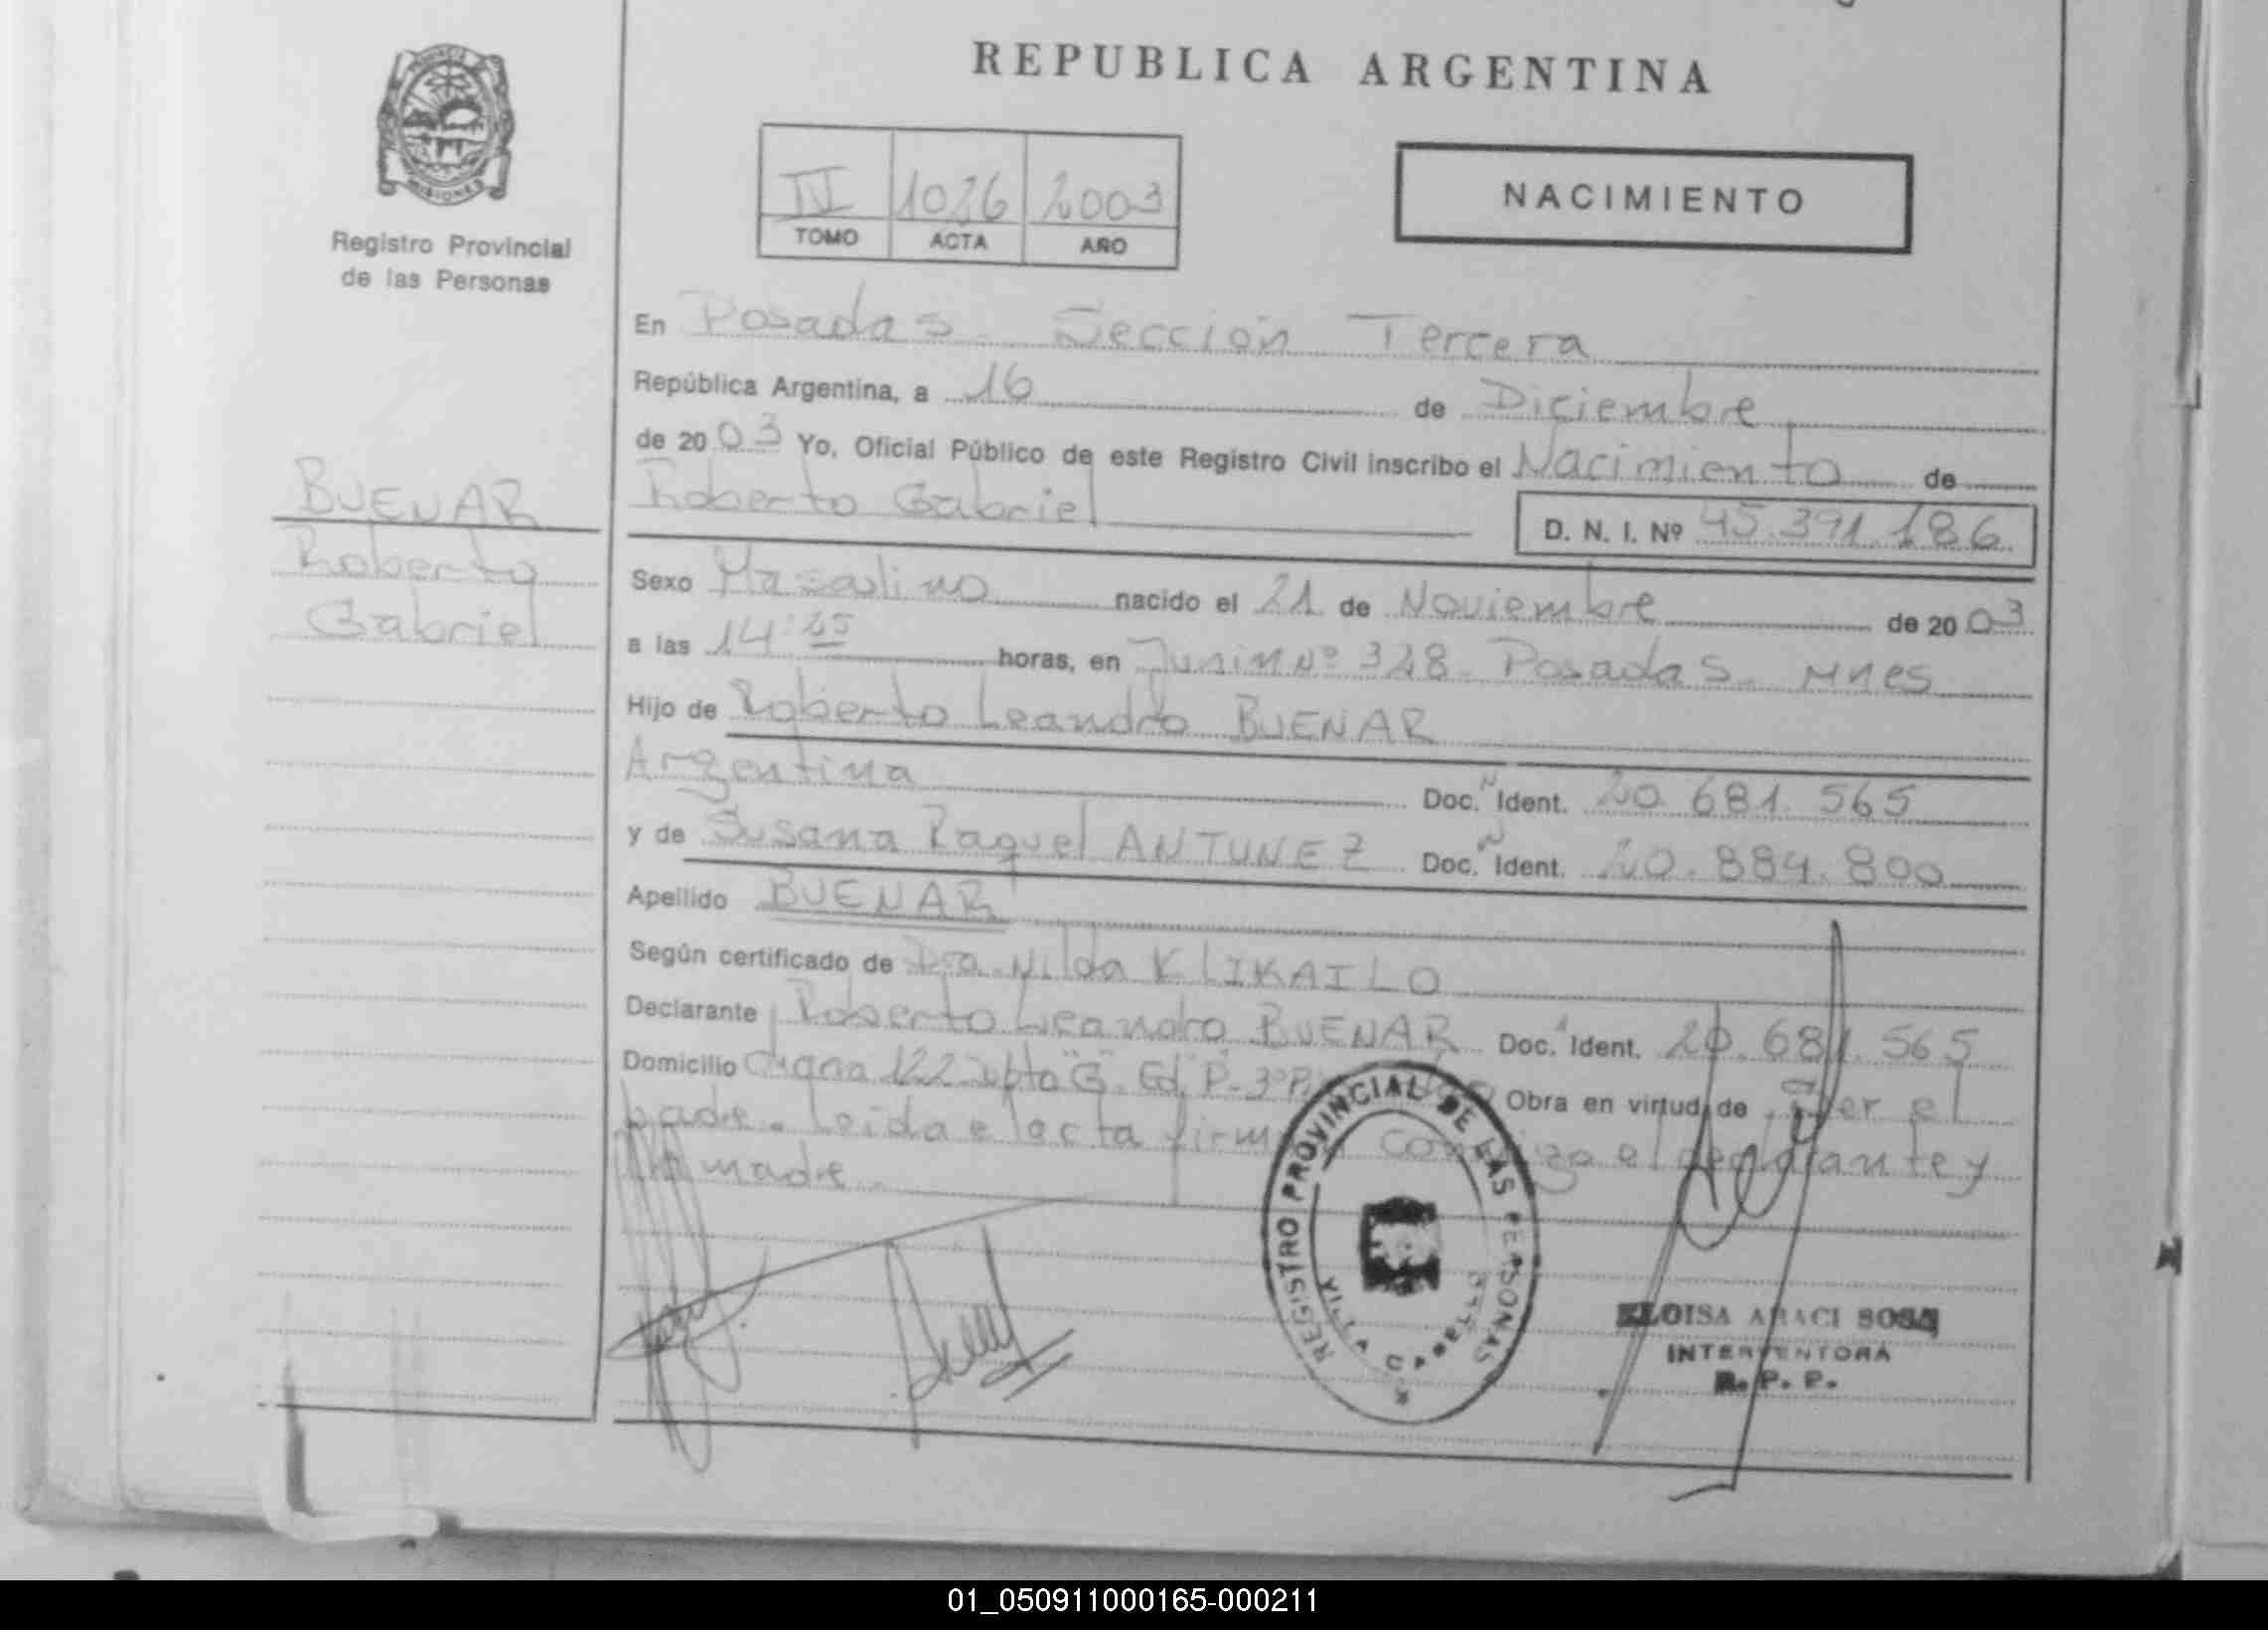 REPUBLICA ARGENTINA
MISIONES
Registro Provincial
de las Personas
IV 1026 2003
TOMO ACTA AÑO
NACIMIENTO
BUENAR
Roberto
Gabriel
En Posadas Sección Tercera
República Argentina, a 16 de Diciembre
de 2003 Yo, Oficial Público de este Registro Civil inscribo el Nacimiento de
Roberto Gabriel D. N. I. Nº 45.391.186
Sexo Masculino nacido el 21 de Noviembre de 2003
a las 14: horas, en Junin Nº 328 Posadas Mnes
Hijo de Roberto Leandro BUENAR
Argentina Doc. Ident. 20.681.565
y de Susana Raquel ANTUNEZ Doc. Ident. 20.884.800
Apellido BUENAR
Según certificado de Dra. Nilda KLIKAILO
Declarante Roberto Leandro BUENAR Doc. Ident. 20.681.565
Domicilio 122 Dpto G. Ed. P. 3º Obra en virtud de ser el
padre. Leida el acta firma conmigo el declarante y
la madre.
REGISTRO PROVINCIAL DE LAS PERSONAS
ELOISA ARACI SOSA
INTERVENTORA
R. P. P.
01_050911000165-000211